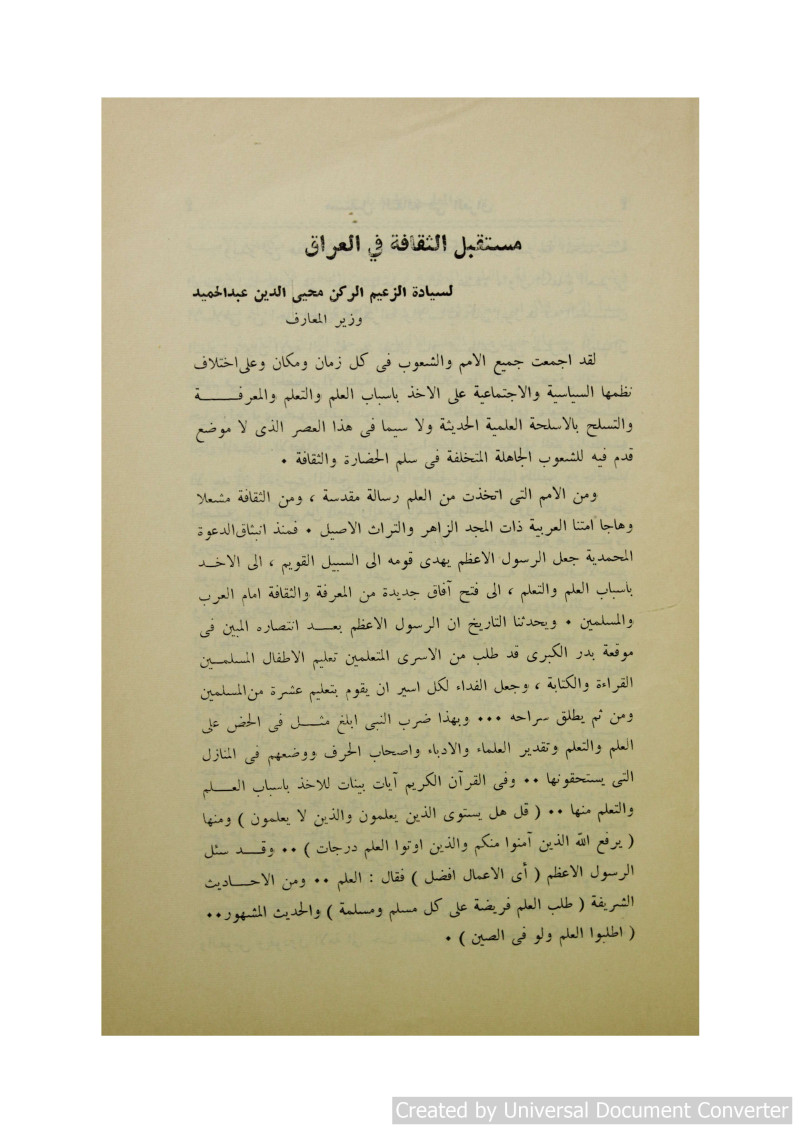 مستقبل الثقافة في العراق
لسيادة الزعيم الركن محيى الدين عبدالحميد
وزير المعارف
لقد اجمعت جميع الامم والشعوب فى كل زمان ومكان وعلى اختلاف
نظمها السياسية والاجتماعية على الاخذ باسباب العلم والتعلم والمعرفــــــة
والتسلح بالاسلحة العلمية الحديثة ولا سيما فى هذا العصر الذى لا موضع
قدم فيه للشعوب الجاهلة المتخلفة فى سلم الحضارة والثقافة ٠
ومن الامم التى اتخذت من العلم رسالة مقدسة ، ومن الثقافة مشعلا
وهاجا امتنا العربية ذات المجد الزاهر والتراث الاصيل ٠ فمنذ انبثاق الدعوة
المحمدية جعل الرسول الاعظم يهدى قومه الى السبيل القويم ، الى الاخــذ
باسباب العلم والتعلم ، الى فتح آفاق جديدة من المعرفة والثقافة امام العرب
والمسلمين ٠ ويحدثنا التاريخ ان الرسول الاعظم بعــــد انتصاره المبين فى
موقعة بدر الكبرى قد طلب من الاسرى المتعلمين تعليم الاطفال المسلمــين
القراءة والكتابة ، وجعل الفداء لكل اسير ان يقوم بتعليم عشرة من المسلمين
ومن ثم يطلق سراحه ٠٠٠ وبهذا ضرب النبى ابلغ مثــــل فى الحض على
العلم والتعلم وتقدير العلماء والادباء واصحاب الحرف ووضعهم فى المنازل
التى يستحقونها ٠٠ وفى القرآن الكريم آيات بينات للاخذ باسباب العــــلم
والتعلم منها ٠٠ ( قل هل يستوى الذين يعلمون والذين لا يعلمون ) ومنها
( يرفع الله الذين آمنوا منكم والذين اوتوا العلم درجات ) ٠٠ وقــــد سئل
الرسول الاعظم ( أى الاعمال افضل ) فقال : العلم ٠٠ ومن الاحــاديث
الشريفة ( طلب العلم فريضة على كل مسلم ومسلمة ) والحديث المشهور٠٠
( اطلبوا العلم ولو فى الصين ) ٠
Created by Universal Document Converter